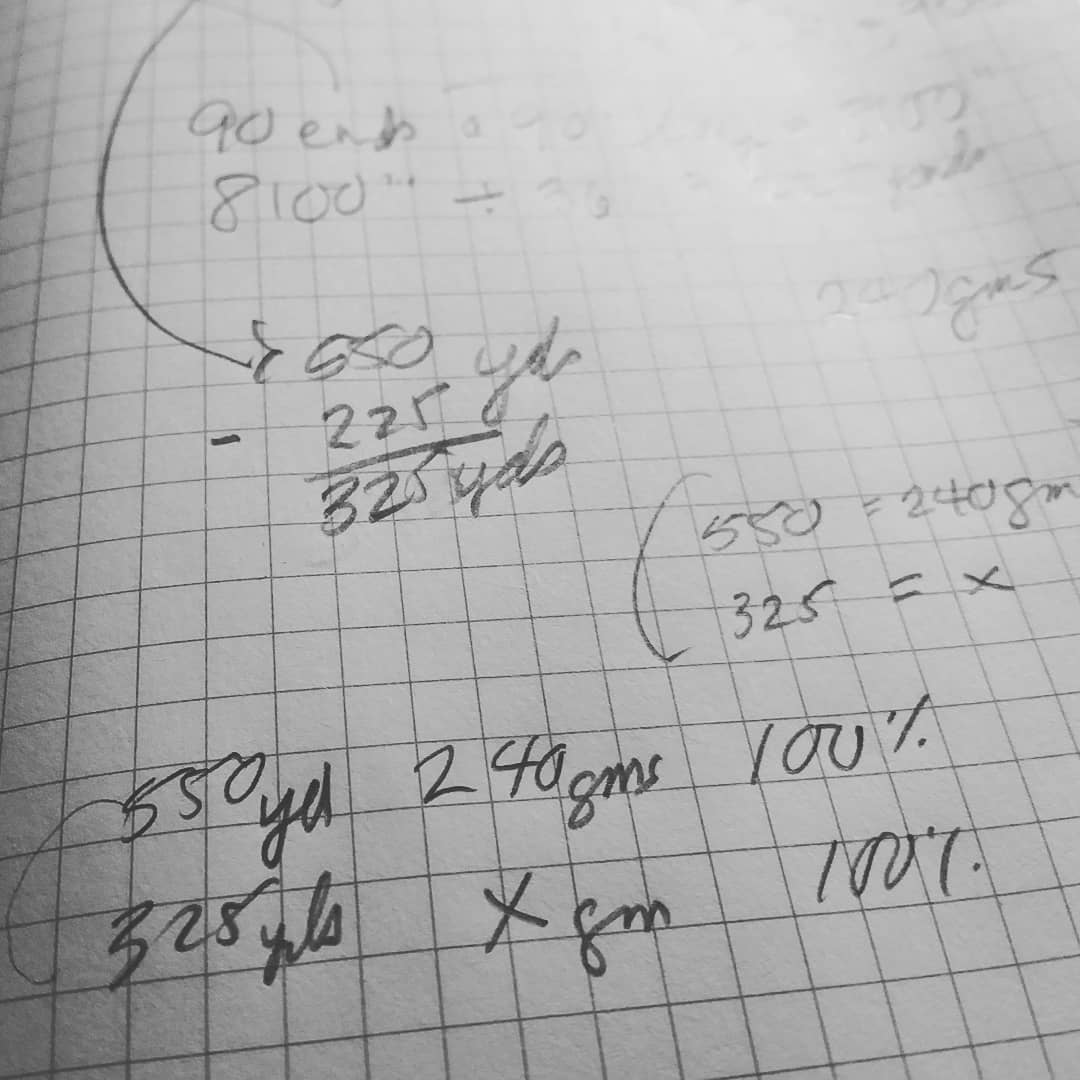 90 ends
8100" ÷ 36
gms
550 yds
- 225
325 yds
550 = 240gm
325 = x
550yd 240gms 100%
325yds X gm 100%